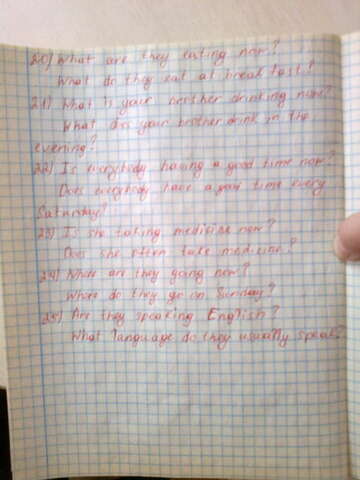 20) What are they eating now?
What do they eat at breakfast?
21) What is your brother drinking now?
What does your brother drink in the
evening?
22) Is everybody having a good time now?
Does everybody have a good time every
Saturday?
23) Is she taking medicine now?
Does she often take medicine?
24) Where are they going now?
Where do they go on Sunday?
25) Are they speaking English?
What language do they usually speak?